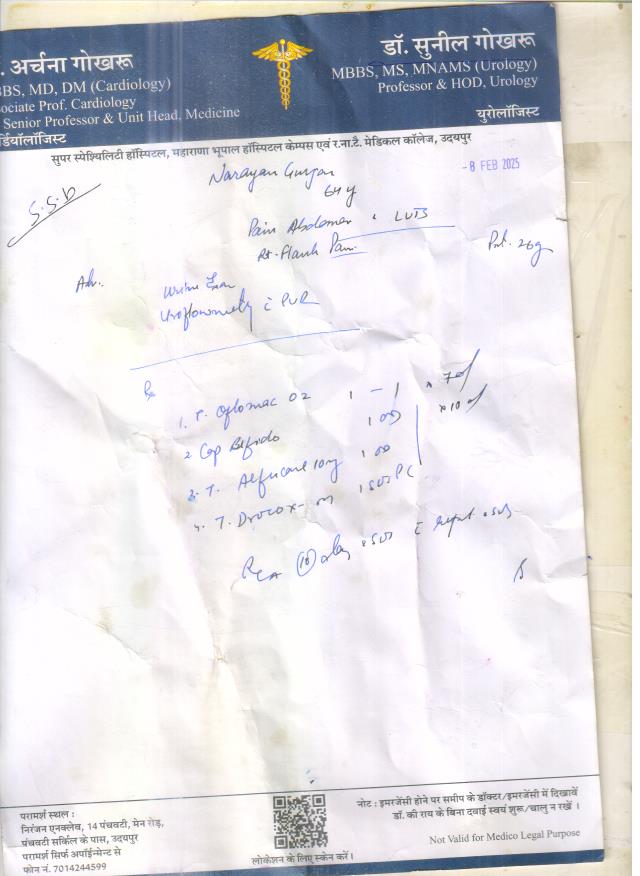 . अर्चना गोखरू
BBS, MD, DM (Cardiology)
sociate Prof. Cardiology
Senior Professor & Unit Head, Medicine
र्डियोलॉजिस्ट
डॉ. सुनील गोखरू
MBBS, MS, MNAMS (Urology)
Professor & HOD, Urology
युरोलॉजिस्ट
सुपर स्पेश्यिलिटी हॉस्पिटल, महाराणा भूपाल हॉस्पिटल केम्पस एवं र.ना.टै. मेडिकल कॉलेज, उदयपुर
- 8 FEB 2025
S.S.B
Narayan Gurjar
64 y
Pain Abdomen LUTS
Rt. Flank Pain
26g
Adv.
Urine
Uroflowmetry c PVR
Rx
1. T. Oflomac OZ 1 - 1 x 7 d
2 Cap Bifido 1 OD x 10 d
3. T. 10mg 1 OD
4. T. 1 SOS PC
10 day
परामर्श स्थल :
निरंजन एनक्लेव, 14 पंचवटी, मेन रोड़,
पंचवटी सर्किल के पास, उदयपुर
परामर्श सिर्फ अपॉईन्मेन्ट से
फोन नं. 7014244599
लोकेशन के लिए स्केन करें।
नोट : इमरजेंसी होने पर समीप के डॉक्टर/इमरजेंसी में दिखावें
डॉ. की राय के बिना दवाई स्वयं शुरू/चालु न रखें ।
Not Valid for Medico Legal Purpose